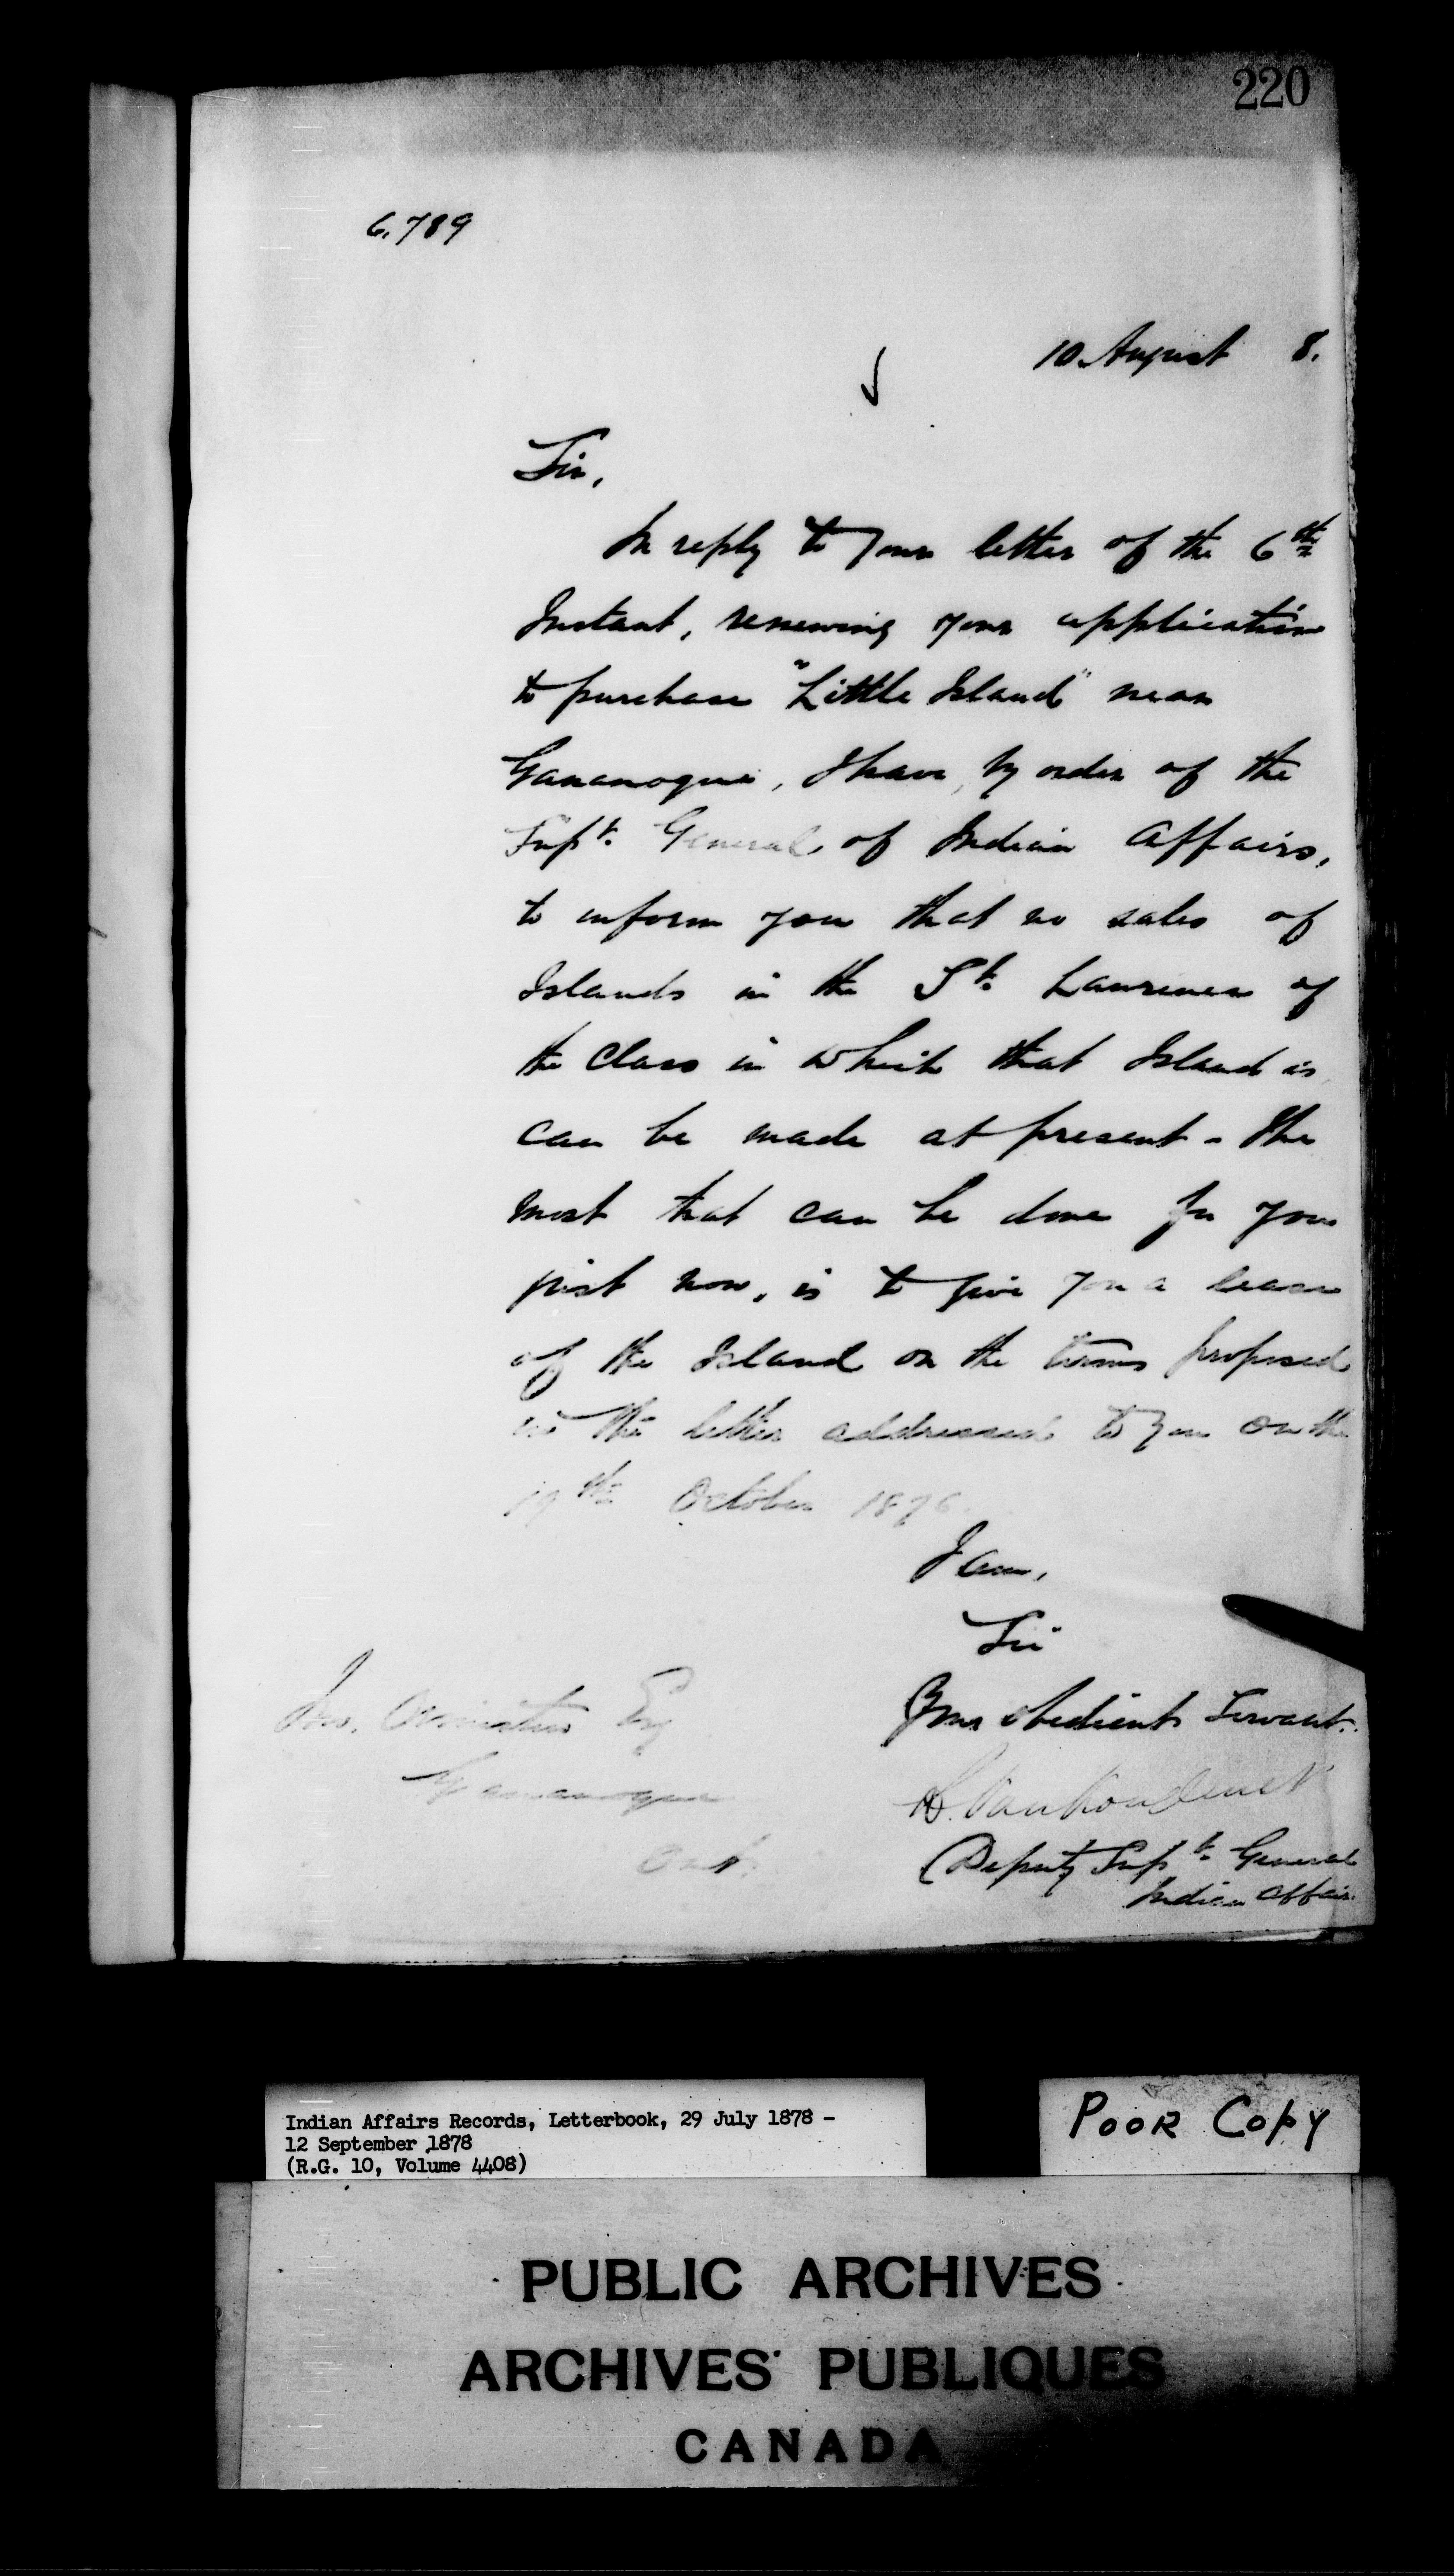 220
6.789
10 August 8.
Sir,
In reply to your letter of the 6th
Instant, renewing your application
to purchase "Little Island" near
Gananoque, I have, by order of the
Supt. General of Indian Affairs,
to inform you that no sales of
Islands in the St. Lawrence of
the Class in which that Island is
can be made at present - The
most that can be done for you
just now, is to give you a lease
of the Island on the terms proposed
in the letter addressed to you on the
19th October 1876.
I am,
Sir
Your obedient Servant.
Esq
L. Vankoughnet
Gananoque
Ont.
Deputy Supt. General
Indian Affairs
Indian Affairs Records, Letterbook, 29 July 1878 -
12 September 1878
(R.G. 10, Volume 4408)
POOR COPY
PUBLIC ARCHIVES
ARCHIVES PUBLIQUES
CANADA